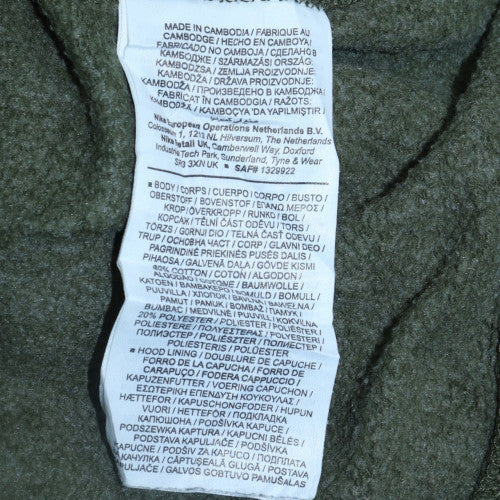 MADE IN CAMBODIA / FABRIQUE AU
CAMBODGE / HECHO EN CAMBOYA/
FABRICADO NO CAMBOJA / СДЕЛАНО В
КАМБОДЖЕ / SZÁRMAZÁSI ORSZÁG:
KAMBODZSA / ZEMLJA PROIZVODNJE:
KAMBODŽA / ДЪРЖАВА PROIZVODNJE:
КАМБОДЖА / ПРОИЗВЕДЕНО В КАМБОДЖА/
FABRICAT ÎN CAMBODGIA / RAŽOTS:
KAMBODŽA / KAMBOÇYA 'DA YAPILMIŞTIR /
Nike European Operations Netherlands B.V.
Colosseum 1, 1213 NL Hilversum, The Netherlands
Nike Retail UK, Camberwell Way, Doxford
Industrial Tech Park, Sunderland, Tyne & Wear
SR3 3XN UK ▪ SAF# 1329922
▪ BODY / CORPS / CUERPO / CORPO / BUSTO /
OBERSTOFF / BOVENSTOF / ΕΠΑΝΩ ΜΕΡΟΣ /
KROP / ÖVERKROPP / RUNKO / BOL /
КОРСАК / TELNÁ ČÁST ODĚVU / TORS /
TÖRZS / GORNJI DIO / TELNÁ ČASŤ ODEVU /
TRUP / ОСНОВНА ЧАСТ / CORP / GLAVNI DEO /
PAGRINDINĖ PRIEKINĖS PUSĖS DALIS /
PIHAOSA / GALVENĀ DAĻA / GÖVDE KISMI
80% COTTON / COTON / ALGODON /
ALGODÃO / COTONE / BAUMWOLLE /
KATOEN / ΒΑΜΒΑΚΕΡΟ / BOMULD / BOMULL /
PUUVILLA / ХЛОПОК / BAVLNA / BAWEŁNA /
PAMUT / PAMUK / BOMBAŽ / ПАМУК /
BUMBAC / MEDVILNĖ / PUUVILL / KOKVILNA
20% POLYESTER / POLIÉSTER /
POLIESTERE / ΠΟΛΥΕΣΤΕΡΑΣ / POLYESTERI /
ПОЛИЭСТЕР / POLIÉSZTER / ПОЛИЕСТЕР /
POLIESTERIS / POLÜESTER
▪ HOOD LINING / DOUBLURE DE CAPUCHE /
FORRO DE LA CAPUCHA / FORRO DE
CARAPUÇO / FODERA CAPPUCCIO /
KAPUZENFUTTER / VOERING CAPUCHON /
ΕΣΩΤΕΡΙΚΗ ΕΠΕΝΔΥΣΗ ΚΟΥΚΟΥΛΑΣ /
HÆTTEFOR / KAPUSCHONGFODER / HUPUN
VUORI / HETTEFÔR / ПОДКЛАДКА
КАПЮШОНА / PODŠÍVKA KAPUCE /
PODSZEWKA KAPTURA / KAPUCNI BÉLÉS /
POSTAVA KAPULJAČE / PODŠÍVKA
KAPUCNE / PODSIV ZA KAPUCO / ПОДПЛАТА
КАЧУЛКА / CĂPTUŞEALĂ GLUGĂ / POSTAVA
KAPULJAČE / GALVOS GOBTUVO PAMUŠALAS/